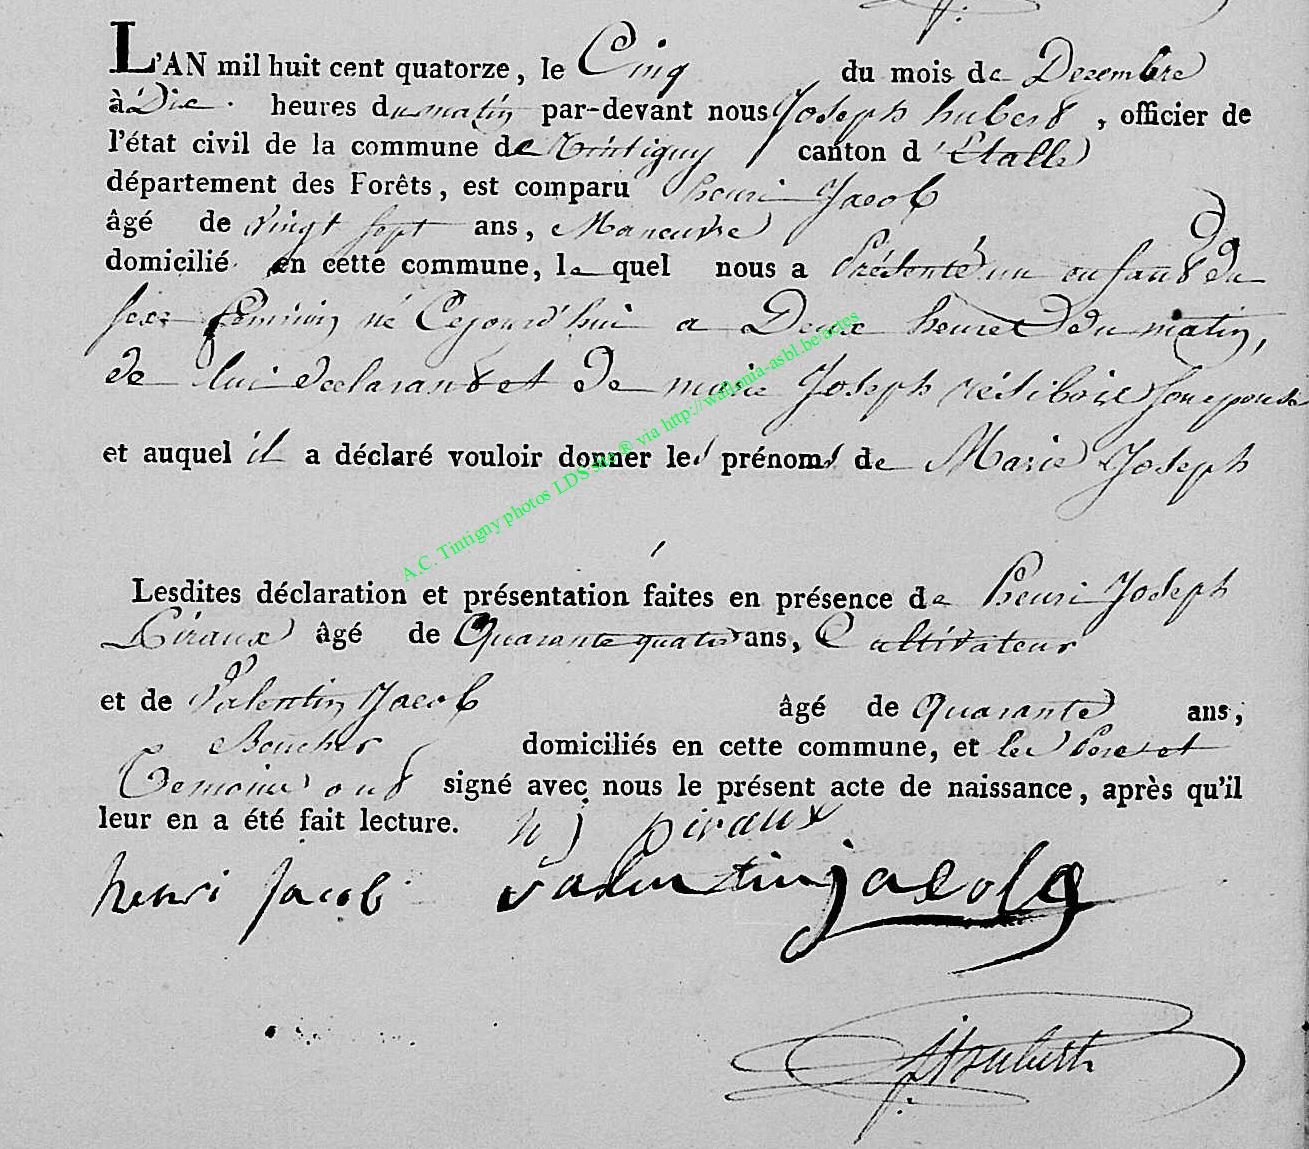 L'AN mil huit cent quatorze, le Cinq du mois de Decembre
à Dix heures du matin par-devant nous Joseph hubert, officier de
l'état civil de la commune de Tintigny canton d'Etalle
département des Forêts, est comparu henri Jacob
âgé de vingt sept ans, Maneuvre
domicilié en cette commune, le quel nous a Présenté un enfant du
sexe feminin né Cejourd'hui a Deux heures du matin,
de lui declarant et de marie Joseph son epouse
et auquel il a déclaré vouloir donner les prénoms de Marie Joseph
A.C. Tintigny photos LDS via http://wallonia-asbl.be/actes
Lesdites déclaration et présentation faites en présence de henri Joseph
Piraux âgé de Quarante quatre ans, Cultivateur
et de Valentin Jacob âgé de Quarante ans,
Boucher domiciliés en cette commune, et les Pere et
Temoins ont signé avec nous le présent acte de naissance, après qu'il
leur en a été fait lecture. h j piraux
henri jacob valentin jacob
J Hubert